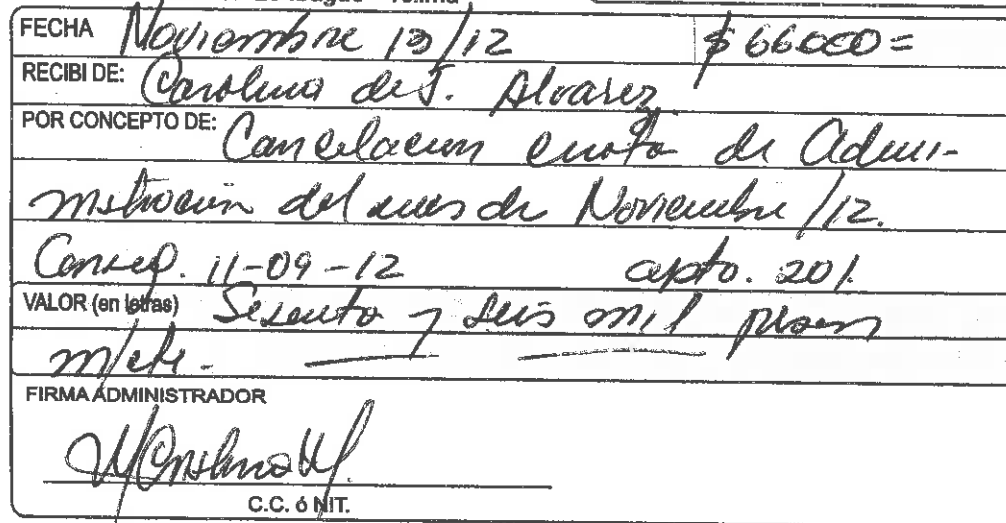 FECHA Noviembre 13/12 $ 66000=
RECIBI DE: Carolina de J. Alvarez
POR CONCEPTO DE: Cancelacion cuota de Admi-
nistracion del mes de Noviembre /12.
Consep. 11-09-12 apto. 201.
VALOR (en letras) Sesenta y seis mil pesos
m/cte.
FIRMA ADMINISTRADOR
C.C. ó NIT.